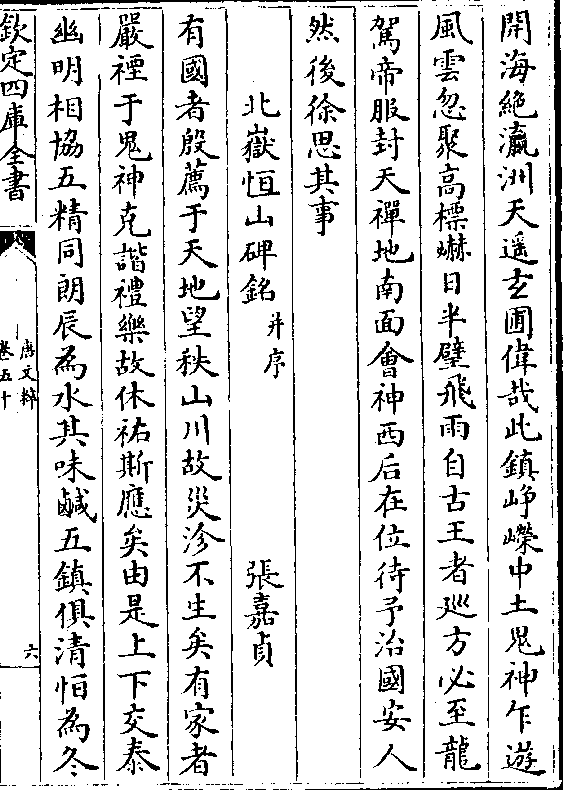 開海絶瀛洲天遥玄圃偉哉此鎮崢嶸中土鬼神乍遊
風雲忽聚高標嚇日半壁飛雨自古王者廵方必至龍
駕帝服封天禪地南面會神西后在位待予治國安人
然後徐思其事
北嶽恒山碑銘并序 張嘉貞
有國者殷薦于天地望秩山川故災沴不生矣有家者
嚴禋于鬼神克諧禮樂故休祐斯應矣由是上下交泰
幽明相協五精同朗辰為水其味鹹五鎮俱清恒為冬
欽定四庫全書
唐文粹
卷五十
六